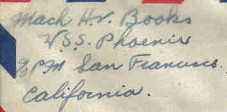 Mach Hr. Books
U.S.S. Phoenix
c/o P.M. San Francisco.
California.